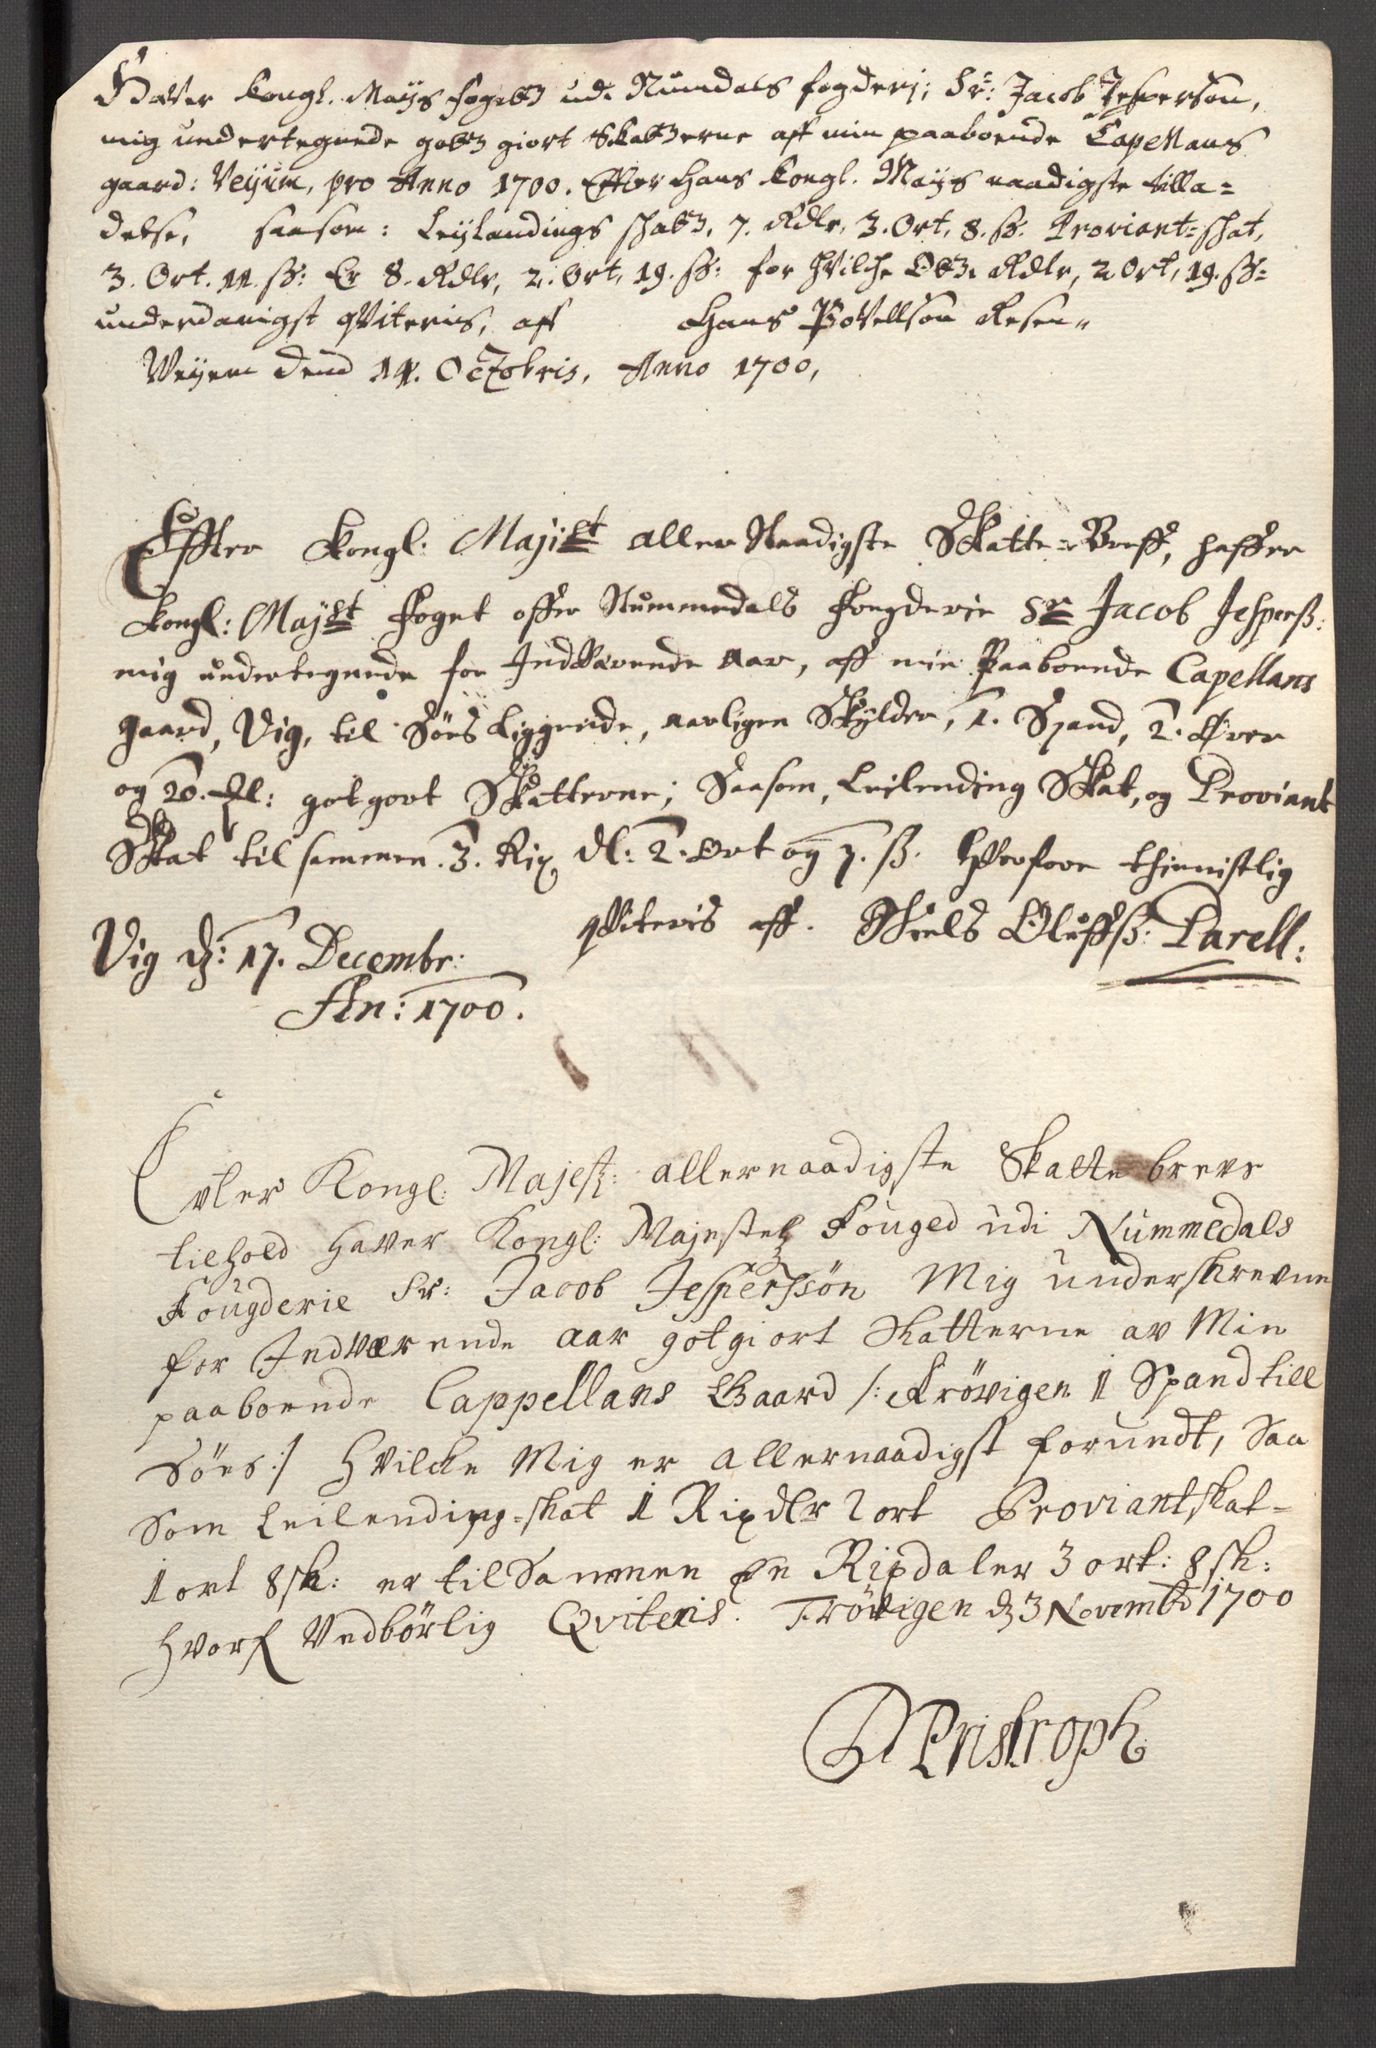 Hafver kongl. Mayts fogett udi Numdals fogderj; Sr: Jacob Jesperson,
mig undertegnede gott giort Skatterne aff min paaboende Capellans
gaard: Veyum, pro Anno 1700. Efter hans kongl. Mayts naadigste tilla-
delse, saasom: Leylandings skatt, 7. Rdlr, 3. Ort, 8. ss. Proviant-skat,
3. Ort. 11. ss: Er 8. Rdlr, 2. Ort, 19. ss: for hvilche Rdlr, 2 Ort, 19. ss:
underdanigst qviteris, aff Hans Povellson Resen
Veyem dend 14. Octobris, Anno 1700,
Effter kongl: Mayst aller Naadigste Skatte-Breff, haffer
kongl: Mayst foget offer Nummedals fougderie Sr Jacob Jesperss:
mig undertegnede for Indværende aar, aff min Paaboende Capellans
gaard, Vig, til Söes liggende, aarligen Skylder, 1. Spand, 2. Ører
og 20. Ml: gotgort Skatterne; Saasom, Leilending Skat, og Proviant
Skat til sammen 3. Rix dl: 2. Ort og 7. ss. hvorfore thienistlig
qviteris aff. Niels Oluffss: Parell:
Vig d: 17. Decembr:
An: 1700.
Evter Kongl: Majest: allernaadigste Skatte brevs
tilhold haver Kongl: Majestetz Fouged udi Nummedals
Fougderie Sr: Jacob Jesperssön Mig underskrevne
for Indværende aar gotgiort Skatterne av Min
paaboende Cappellans Gaard /: Frövigen 1 Spand till
Söes :/ hvilcke Mig er allernaadigst forundt, Saa
Som Leilending-skat 1 Rixdlr 2 ort Proviantskat-
1 ort 8 sk: er tilSammen En Rixdaler 3 ort: 8 sk:
hvorf Vedbörlig Qviteris. Frövigen d 3 Novemb 1700